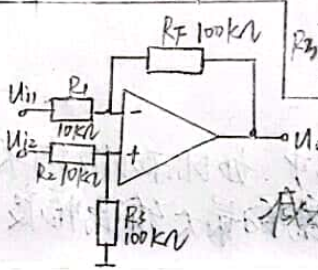 RF 100kΩ
Ui1
R1
10kΩ
-
Ui2
R2 10kΩ
+
R3
100kΩ